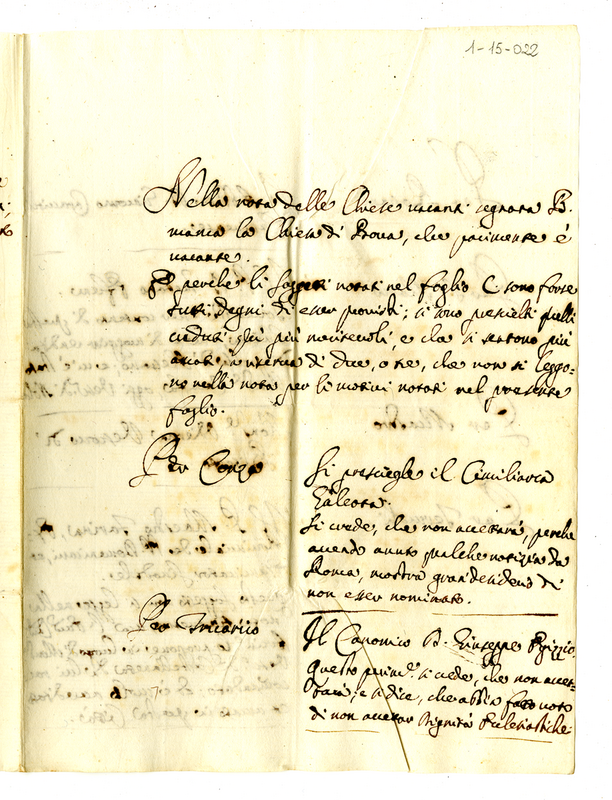 1-15-022
Nella nota delle Chiese vacanti segnata B.
manca la Chiesa di Bova, che parimente è
vacante.
E perche li soggetti notati nel foglio C. sono forse
tutti degni di esser provisti; si sono prescielti quelli
creduti più più meritevoli, e che si sentono più
di due, o tre, che non si leggo-
no nella nota per li motivi notati nel presente
foglio.
Per Conza
Si prescieglie il Cimiliarca
Galeota.
Si crede, che non accettarà, perche
avendo avuto qualche notizia da
Roma, mostra gran desiderio di
non esser nominato.
Per Tricarico
Il Canonico D. Giuseppe Rizzo
Questo parim.e si crede, che non accet-
tarà; e si dice, che abbia fatto voto
di non accettar Dignità Ecclesiastiche